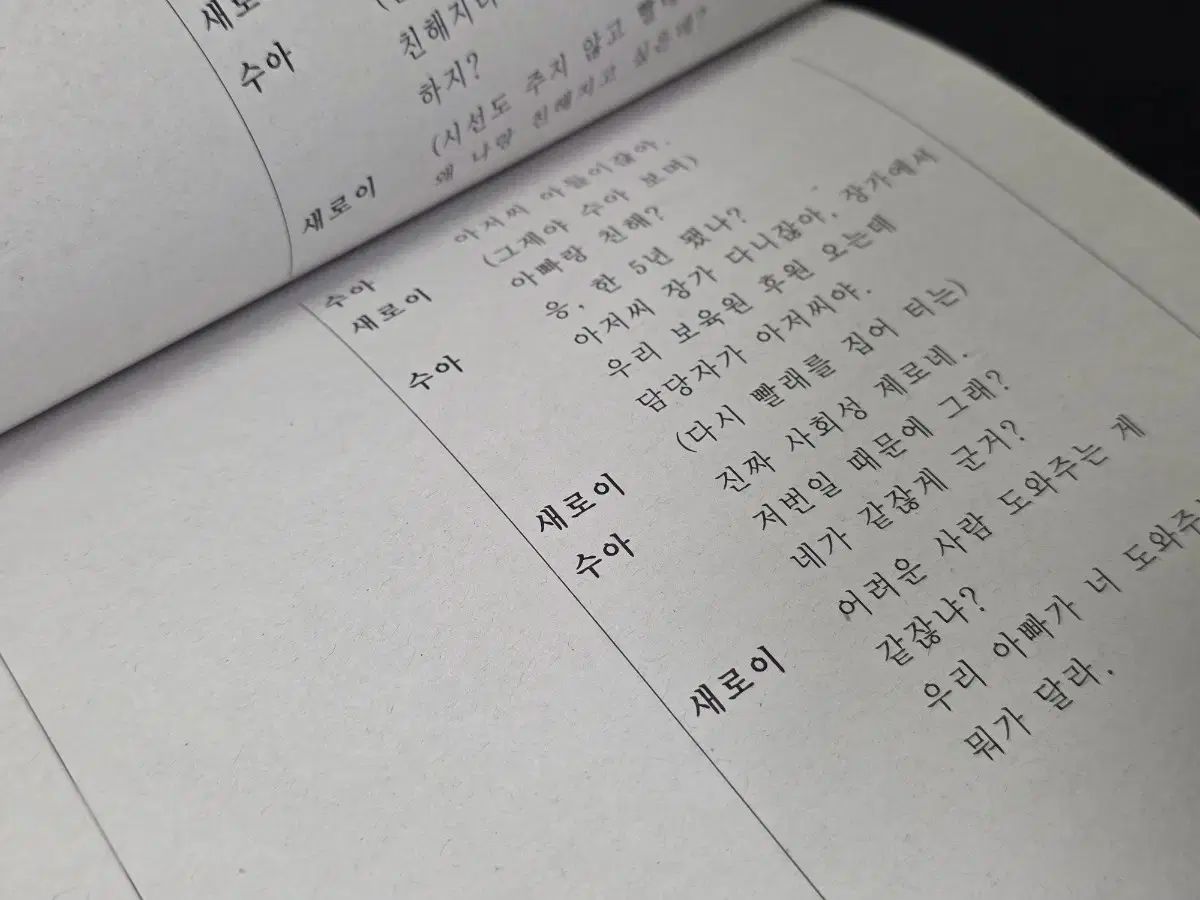 새로
수아 친해지
하지?
새로이 (시선도 주지 않고 빨
왜 나랑 친해지고 싶은데?
수아 아저씨 아들이잖아.
새로이 (그제야 수아 보며)
아빠랑 친해?
수아 응, 한 5년 됐나?
아저씨 장가 다니잖아, 장가에서
우리 보육원 후원 오는데
담당자가 아저씨야.
새로이 (다시 빨래를 집어 터는)
수아 진짜 사회성 제로네.
저번일 때문에 그래?
네가 같잖게 군거?
어려운 사람 도와주는 게
같잖냐?
새로이 우리 아빠가 너 도와주
뭐가 달라.